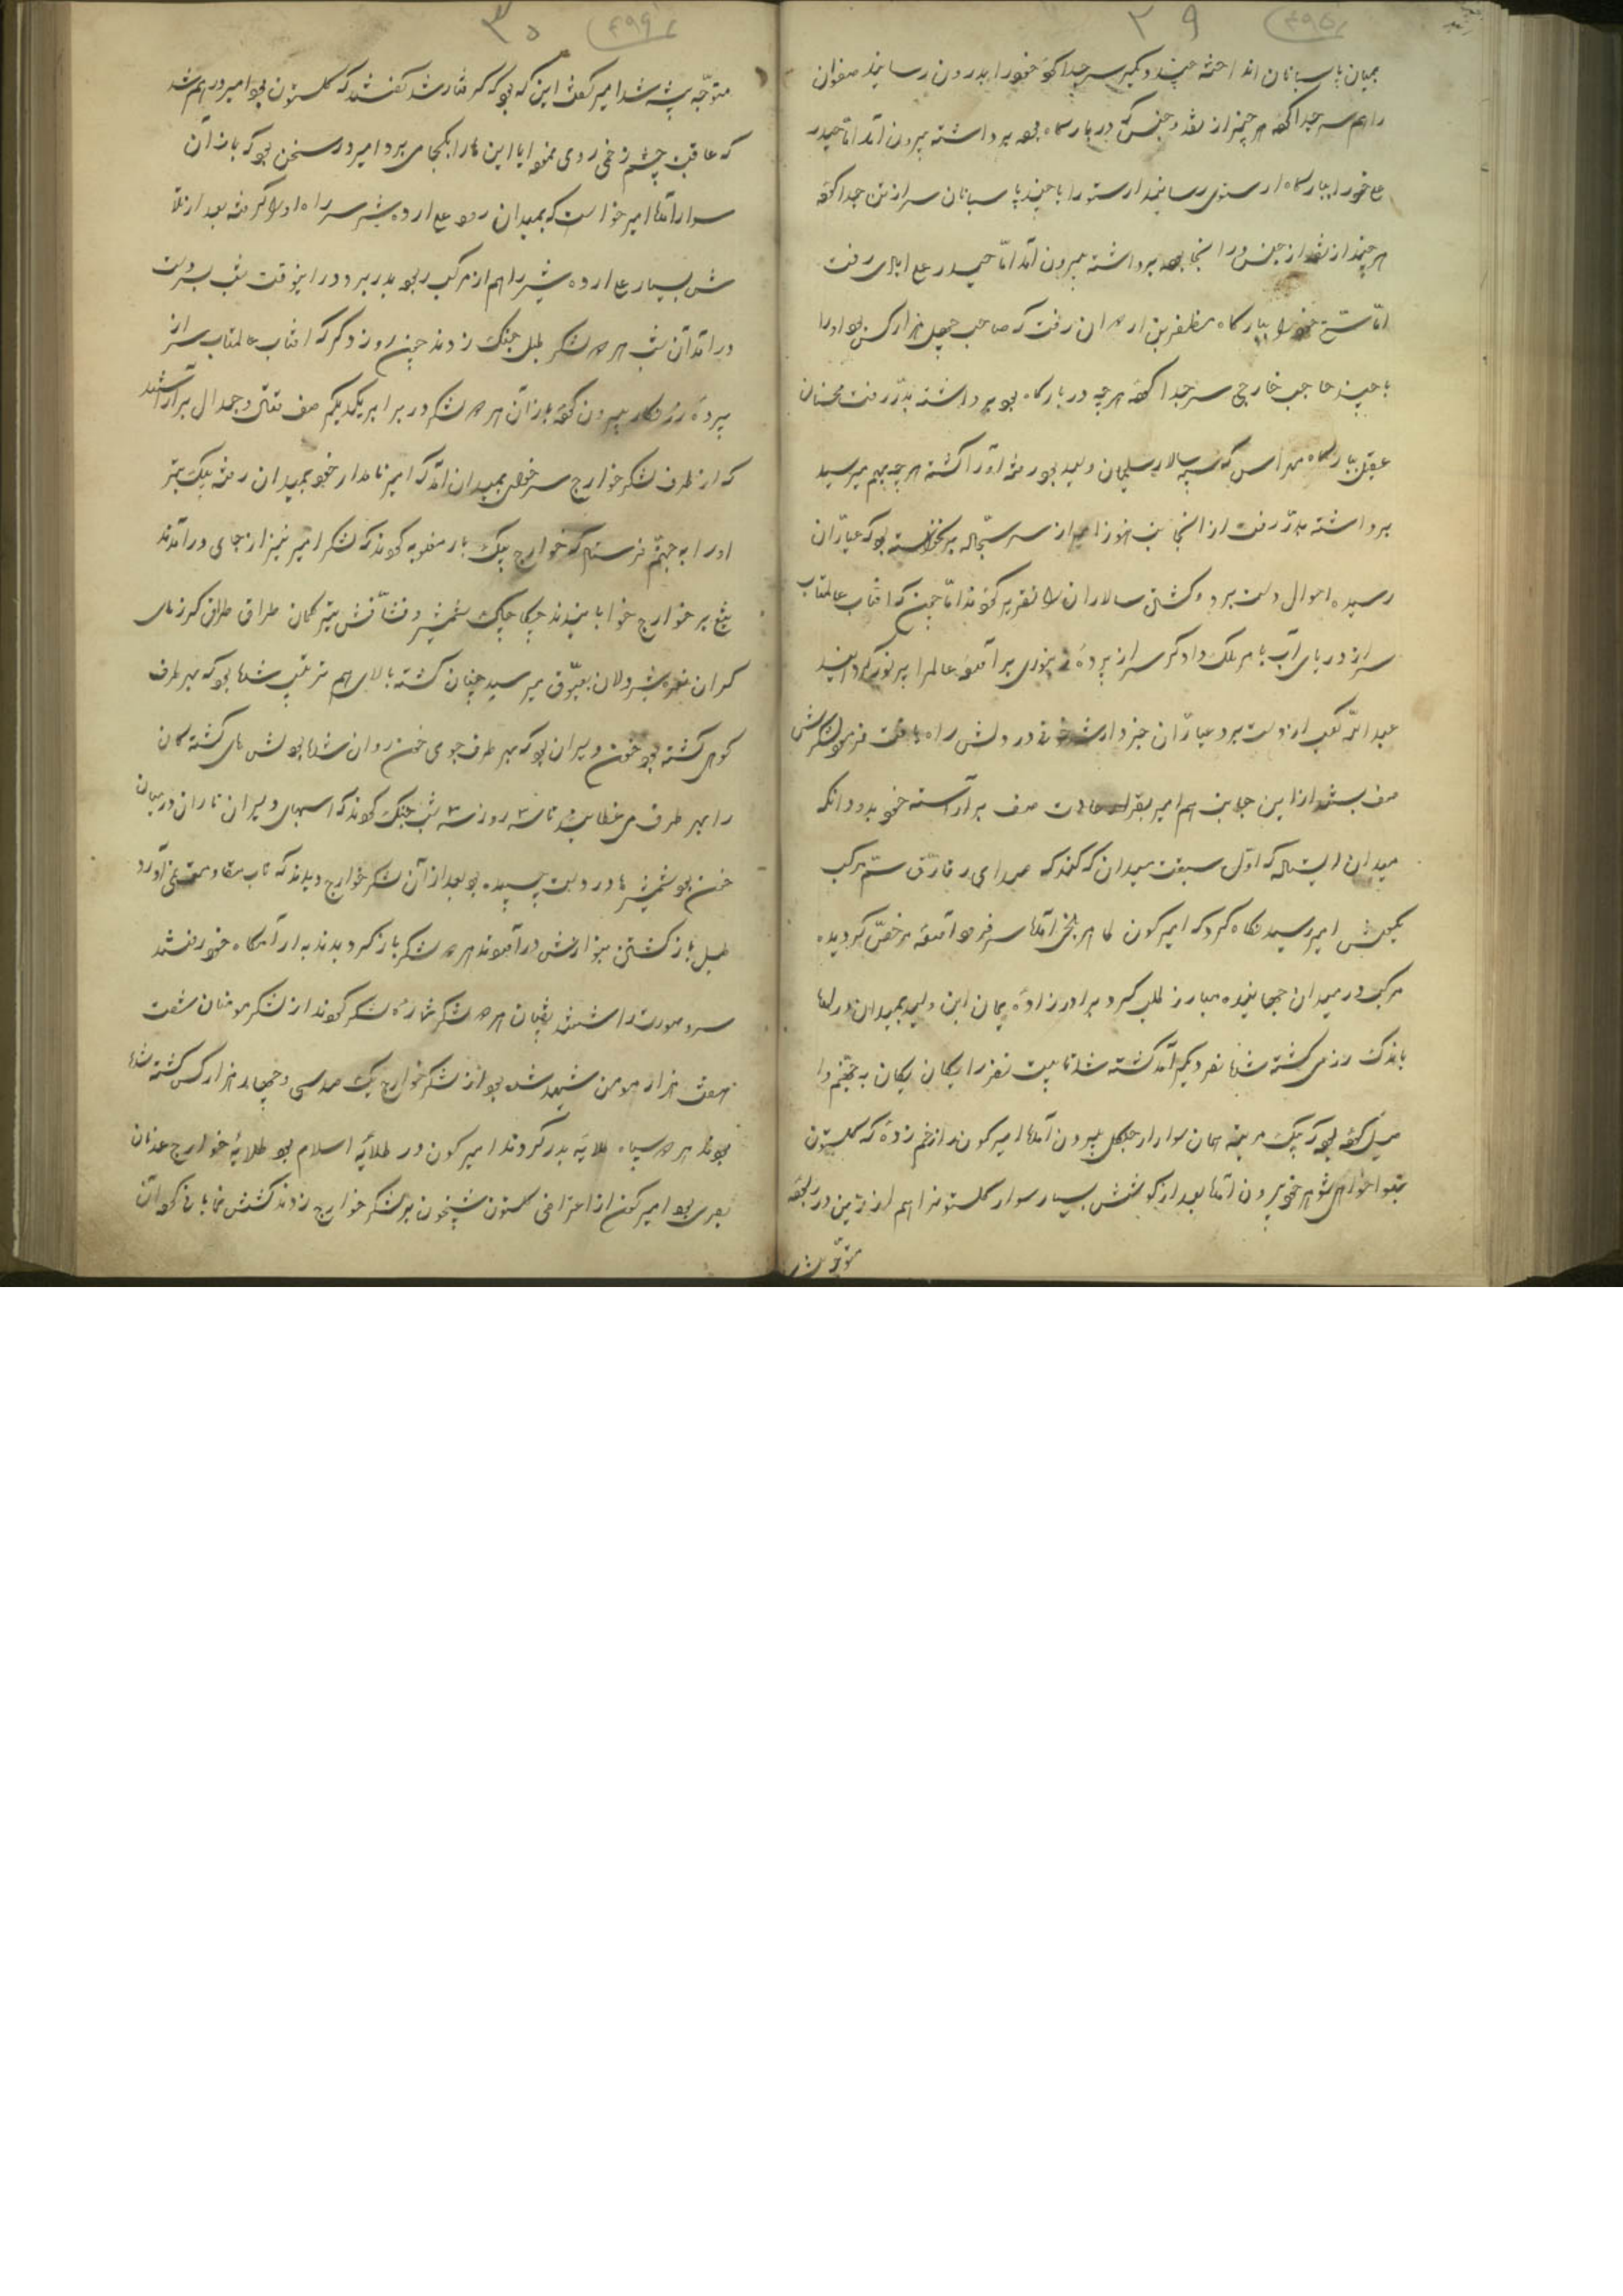 ۲۹
بمیان پاسبانان انداخته چند دیگر سر جدا کرده خود را بدرون رسانید صفوان
را هم سر جدا کرده هر چیز از نقد و جنس که در بارگاه بود برداشته بیرون آمد اما حیدر
علی خود را ببارگاه رسانید را با چند پاسبانان سر از تن جدا کرده
هر چیز از نقد از جنس در انجا بود برداشته بیرون آمد اما حیدر علی رفت
اما خود را ببارگاه مظفر بن رفت که صاحب چهل هزار کس بود او را
با چند حاجب خارجی سر جدا کرده هر چه در بارگاه بود برداشته بدر رفت
عقیل ببارگاه که سپه سالار سلیمان ولید بود رفته او را کشته هر چه بهم میرسید
برداشته بدر رفت از انجانب هنوز امیر از سر سجاده بر نخواسته بود که عیاران
رسیده احوال دست برد و کشتن سالاران را تقریر کردند اما چون که افتاب عالمتاب
سر از دریای آب با مر ملک دادگر سر از پرده بر آمده عالم را پر نور گردانید
عبدالله از دست برد عیاران خبردار شد در دلش راه یافت فرمود لشکرش
صف بستند از این جانب هم امیر بقرار عادت صف بر آراسته خود بدو دانکه
میدان ایستاده که اول سبقت میدان که کند که صدای سم مرکب
بگوش امیر رسید نگاه کرد که امیر کون آمد سر فرود آمده مرخص گردیده
مرکب در میدان جهانیده مبارز طلب کرد برادر زاده این ولید بمیدان در امد
باندک رزمی کشته شد نفر دیگر آمد کشته شد تا بیست نفر را یکان یکان به جهنم وا
میل کرده بود که یک مرتبه همان سوار از جنگل بیرون آمد امیر کون را زخم زده که گلستون
شوهر خود بیرون آمد بعد از کوشش بسیار سوار گلستون را هم از زین در ربوده
متوجه شد
۳۰
متوجه بیشه شد امیر گفت این که بود که گرفتار شد گفتند که گلستون بود امیر در هم شد
که عاقبت چشم زخمی روی نمود ایا این ها را بکجا می برد امیر در سخن بود که باز آن
سوار آمد امیر خواست که بمیدان رود علی ارده شیر سر راه او را گرفته بعد از تلا
ش بسیار علی ارده شیر را هم از مرکب ربوده بدر برد در اینوقت شب بدست
در آمد آن شب هر دو لشکر طبل جنگ زدند چون روز دگر که افتاب عالمتاب سر از
پرده بیرون کرده باز آن هر دو لشکر در برابر یکدیگر صف قتال و جدال بر آراستند
که از طرف لشکر خوارج سر خیل بمیدان آمد که امیر نامدار خود بمیدان رفته بیک تیر
او را به جهنم فرستاد که خوارج یک بار مغلوبه کردند که لشکر امیر نیز از جای در آمدند
تیغ بر خوارج خوابانیدند چکاچاک شمشیر و فشافش تیر کمان طراق طراق گرز های
گران نعره شیر دلان بعیوق میرسید چنان کشته بالای هم ترتیب شد بود که بهر طرف
کوهی کشته بود خون دلیران بود که بهر طرف جوی خون روان شده بود لش های کشته گان
را بهر طرف می غلطانید تا سه روز سه شب جنگ کردند که اسپهای دلیران تا ران در میان
خون بود شمشیر ها در دست چسپیده بود بعد از آن لشکر خوارج دیدند که تاب مقاومت آورد
طبل باز گشتن بنوازش در آوردند هر دو لشکر باز گردیدند به آرامگاه خود رفتند
سر و صورت را شستند نقیبان هر دو لشکر شماره لشکر کردند از لشکر مومنان شصت
هفت هزار مومن شهید شده بود از لشکر خوارج یک صد سی و چهار هزار کس کشته شده
بودند هر دو سپاه طلایه بدر کردند امیر کون در طلایه اسلام بود طلایه خوارج عدنان
بصری بود امیر کون از اعتراضی گلستون شبیخون بر لشکر خوارج زدند کشتش نمایان کرد آن